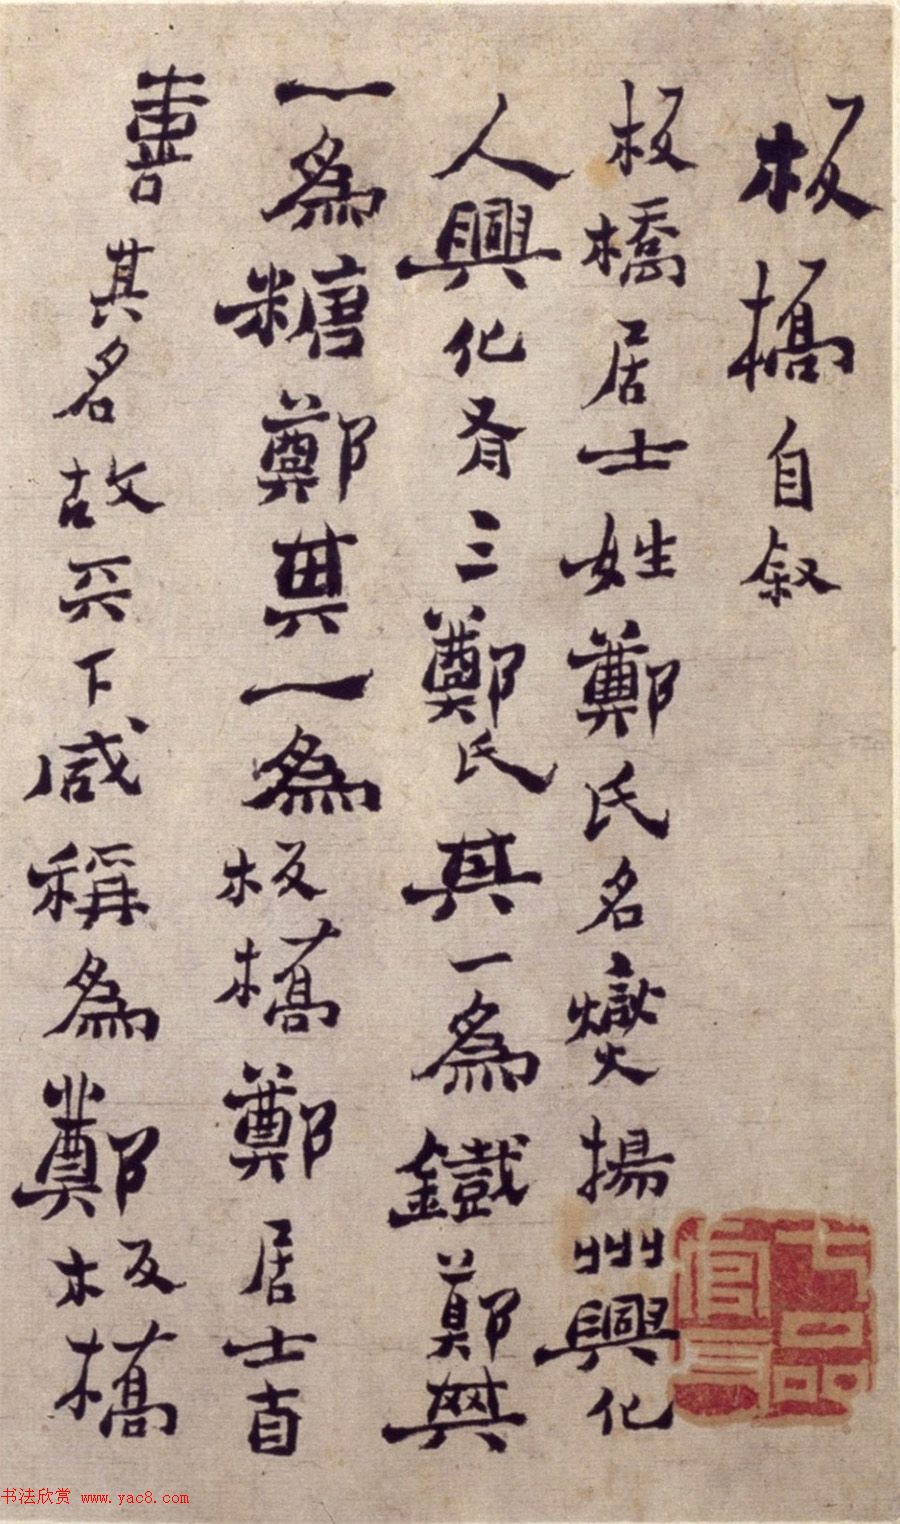 板橋自叙
板橋居士姓鄭氏名燮揚州興化
人興化有三鄭氏其一為鐵鄭其
一為糖鄭其一為板橋鄭居士自
喜其名故天下咸稱為鄭板橋
七品官耳
书法欣赏 www.yac8.com